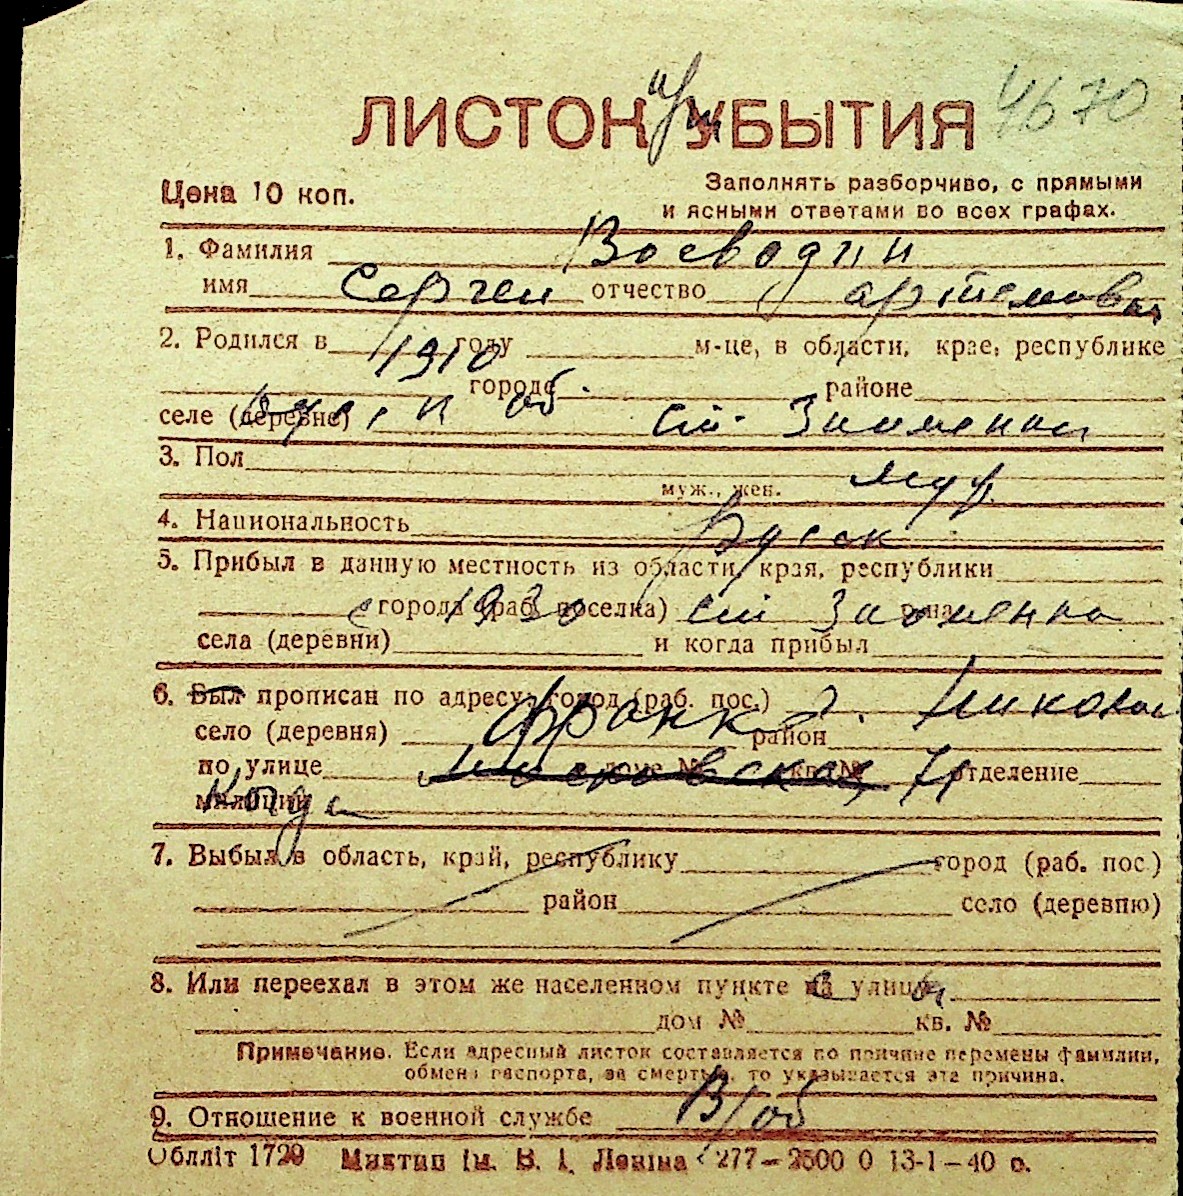 4670
ЛИСТОК УБЫТИЯ
Цена 10 коп.
Заполнять разборчиво, с прямыми
и ясными ответами во всех графах.
1. Фамилия Воеводин
имя Сергей отчество Артемович
2. Родился в 1910 году м-це, в области, крае, республике
городе районе
селе (деревне) об. ст. Зименки
3. Пол муж., жен. муж
4. Национальность Русск
5. Прибыл в данную местность из области, края, республики
города (раб. поселка) с 1930 ст Зименки р-на
села (деревни) и когда прибыл
6. Был прописан по адресу: город (раб. пос.) г. Николаев
село (деревня) Франко район
по улице Московская доме № кв. № 71 отделение
милиции
7. Выбыл в область, край, республику город (раб. пос.)
район село (деревню)
8. Или переехал в этом же населенном пункте на улицу
дом № кв. №
Примечание. Если адресный листок составляется по причине перемены фамилии,
обмена паспорта, за смертью, то указывается эта причина.
9. Отношение к военной службе В/об
Обллiт 1729 Миктип iм. В. I. Ленiна 277—2500 0 13-1—40 р.